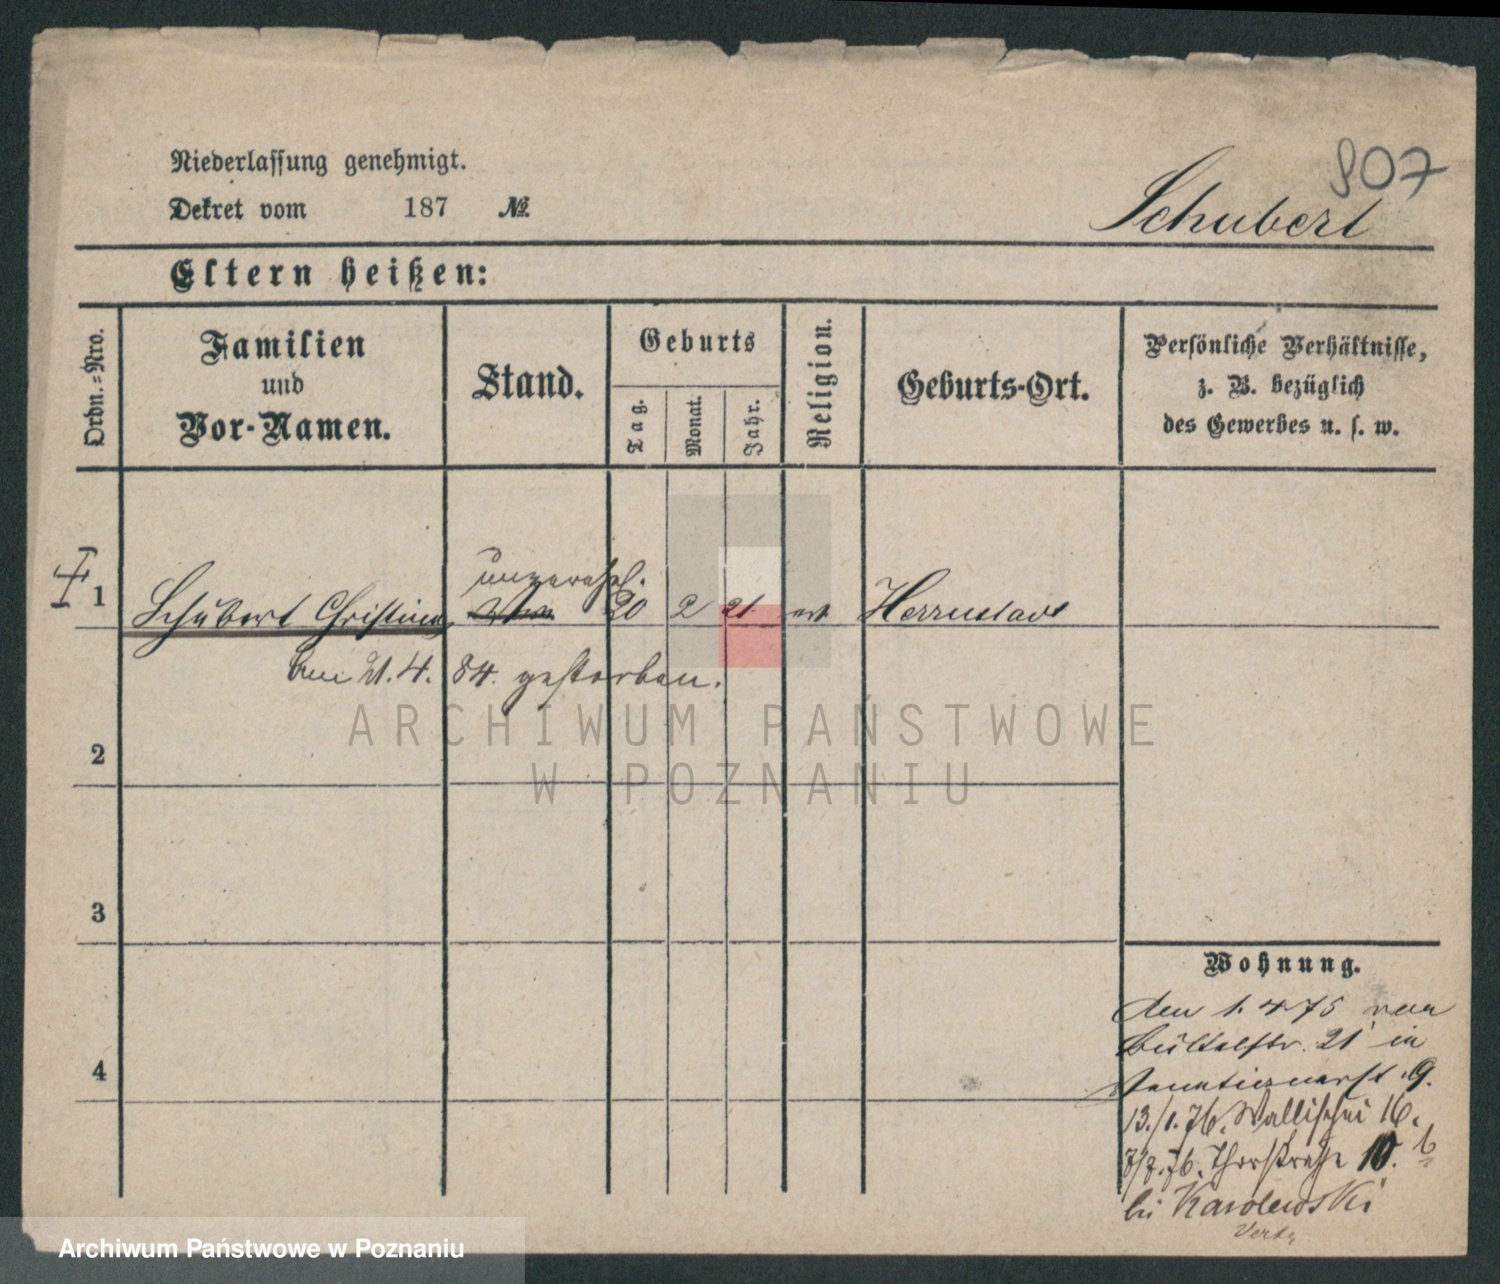 Niederlassung genehmigt.
907
Dekret vom 187 №
Schubert
Eltern heißen:
Ordn.-Nro.
Familien und Vor-Namen.
Stand.
Geburts
Tag.
Monat.
Jahr.
Religion.
Geburts-Ort.
Persönliche Verhältnisse,
z. B. bezüglich
des Gewerbes u. s. w.
unverehel.
1 Schubert Christine 20 2 21 ev Herrnstadt
am 21. 4. 84. gestorben.
2
3
4
Wohnung.
den 1. 4 75 von
Büttelstr. 21 in
9.
13./1. 76. Wallischei 16.
Thorstraße 10. b
bei Karolewski
ARCHIWUM PAŃSTWOWE
W POZNANIU
Archiwum Państwowe w Poznaniu